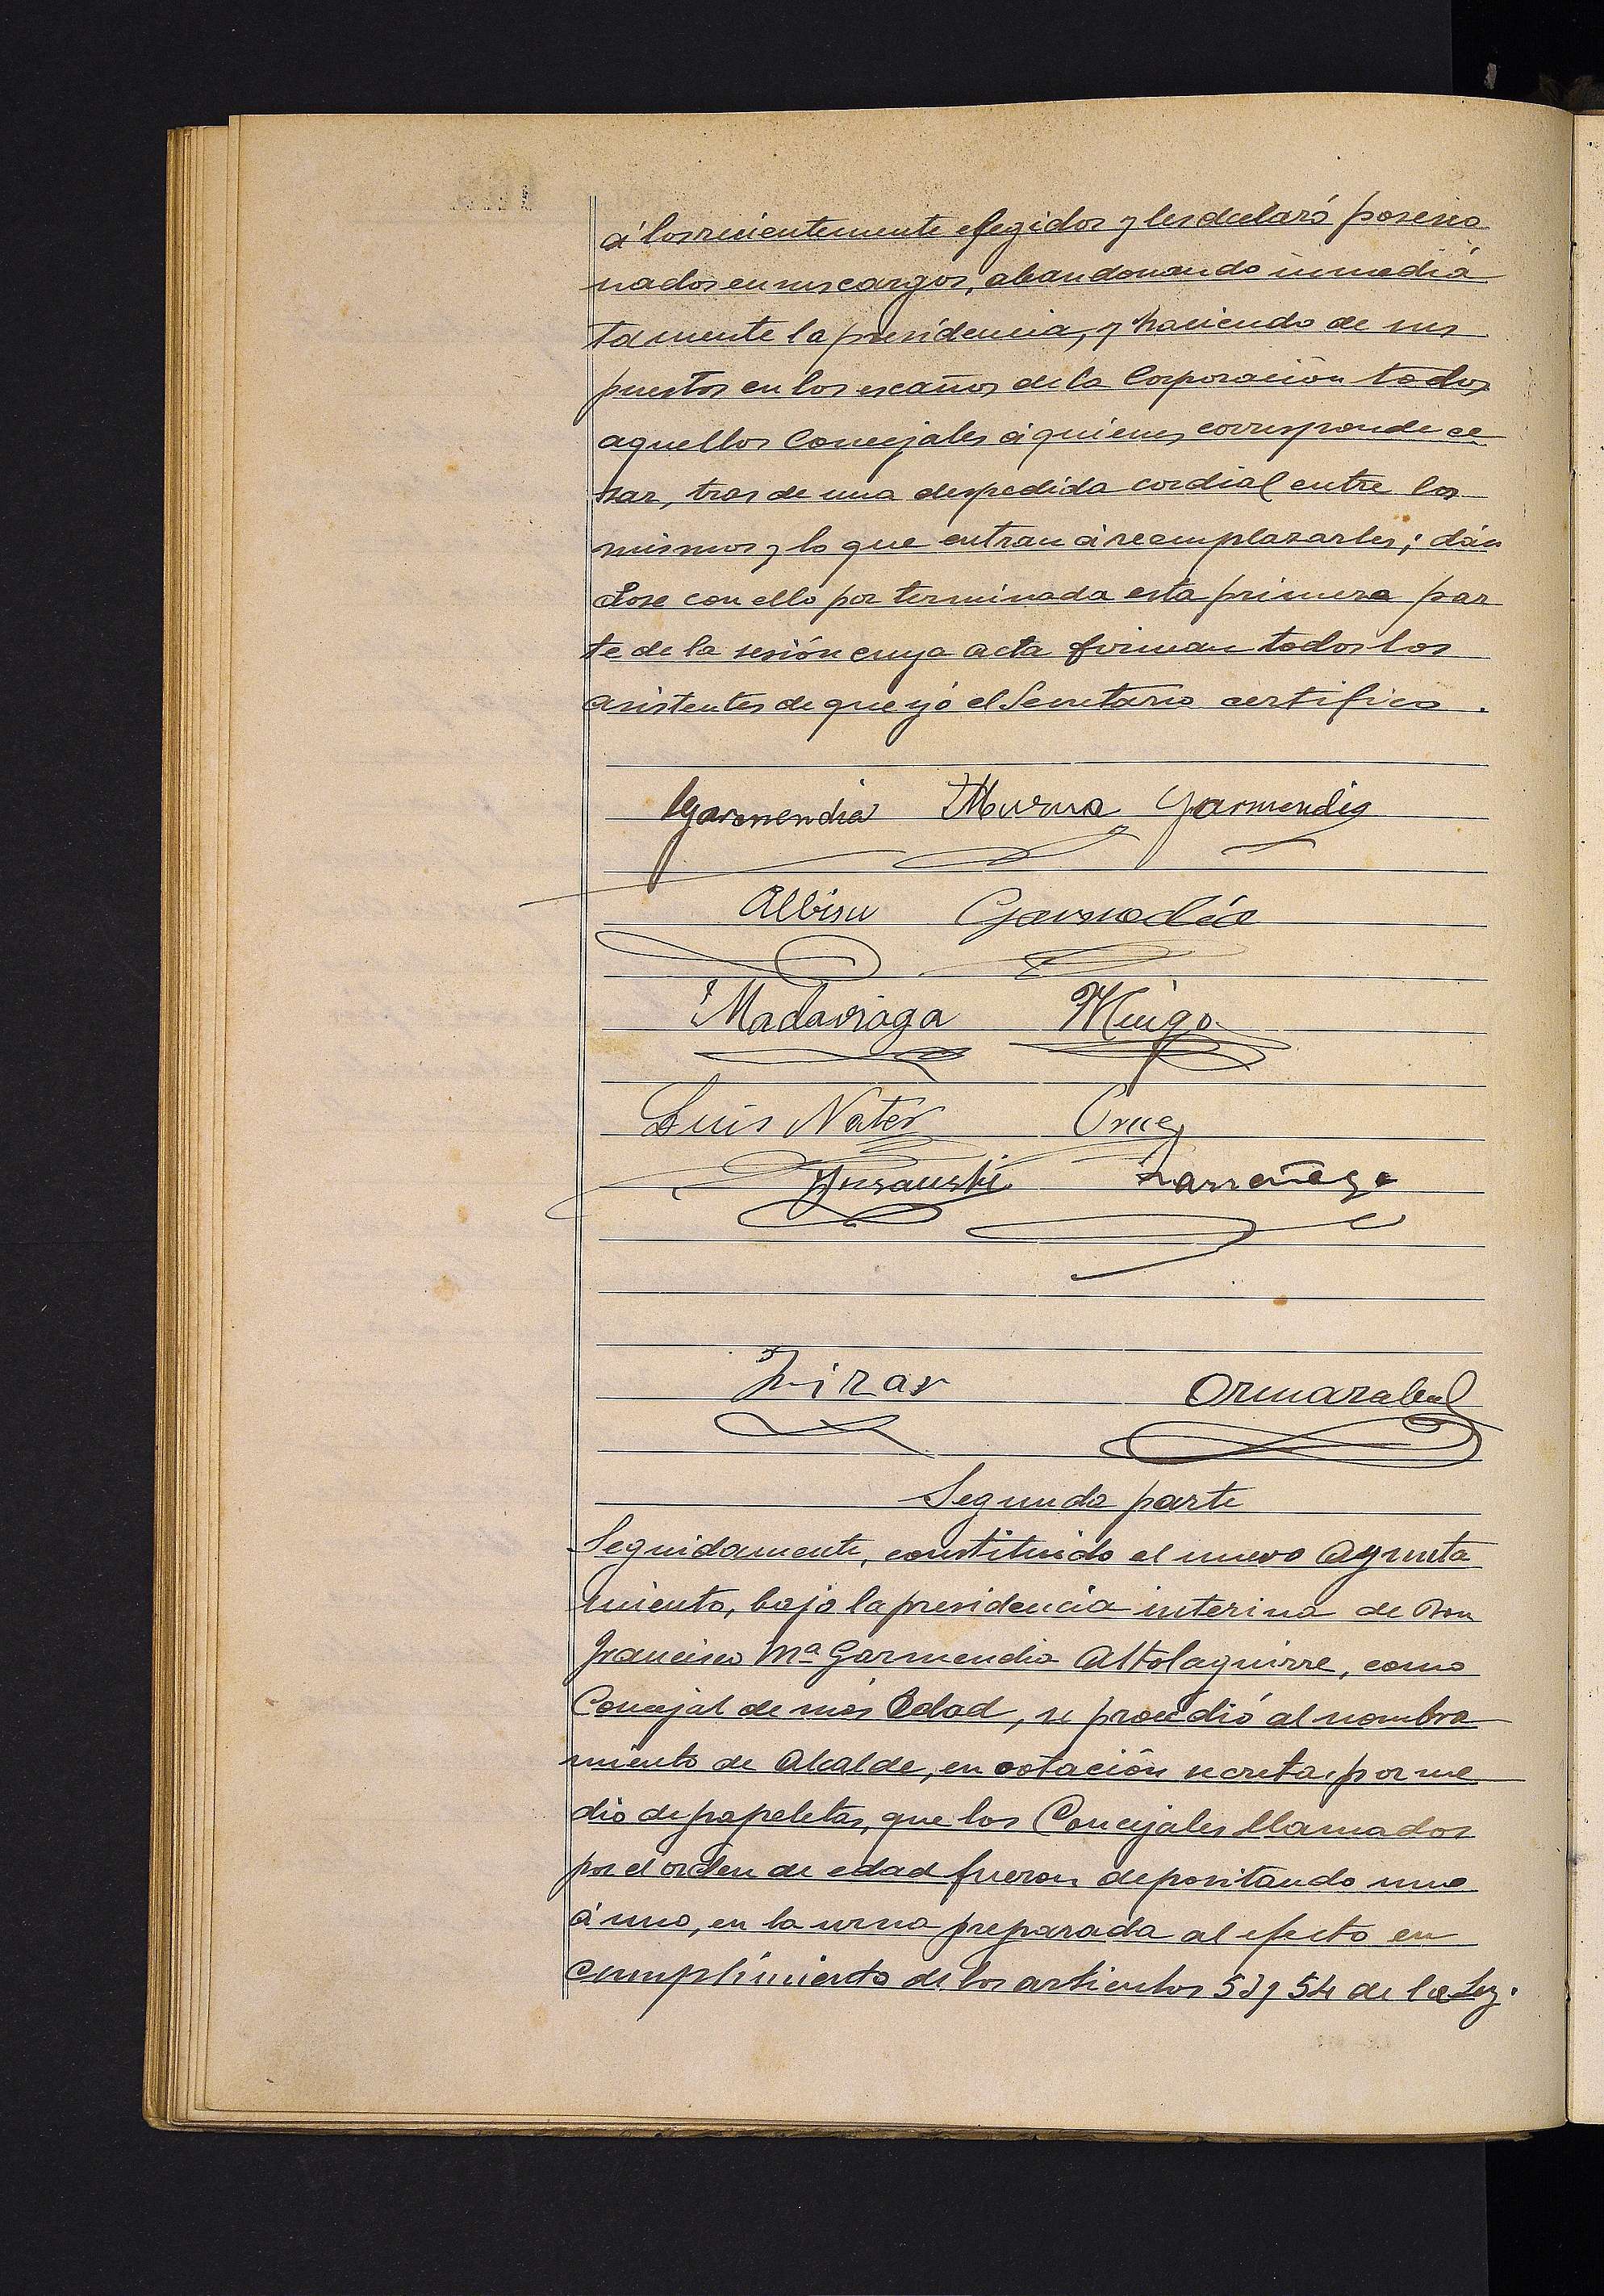 á los recientemente elegidos y les declaró posesio
nados en sus cargos, abandonando inmediá
tamente la presidencia, y haciendo de sus
puestos en los escaños de la Corporación todos
aquellos Concejales á quienes corresponde ce
sar, tras de una despedida cordial entre los
mismos y lo que entran á reemplazarles; dán
dose con ello por terminada esta primera par
te de la sesión cuya acta firman todos los
asistentes de que yó el Secretario certifico.
Garmendia Murua Garmendia
Albisu Garmendia
Madariaga Múgo
Luis Nater Cruz
Larrañaga
Lizar Ormazabal
Segunda parte
Seguidamente, constituido el nuevo Ayunta
miento, bajo la presidencia interina de Don
Francisco Mª Garmendia Altolaguirre, como
Concejal de más Edad, se procedió al nombra
miento de Alcalde, en votación secreta, por me
dio de papeletas, que los Concejales llamados
por el orden de edad fueron depositando uno
á uno, en la urna preparada al efecto en
cumplimiento de los articulos 53 y 54 de la Ley.